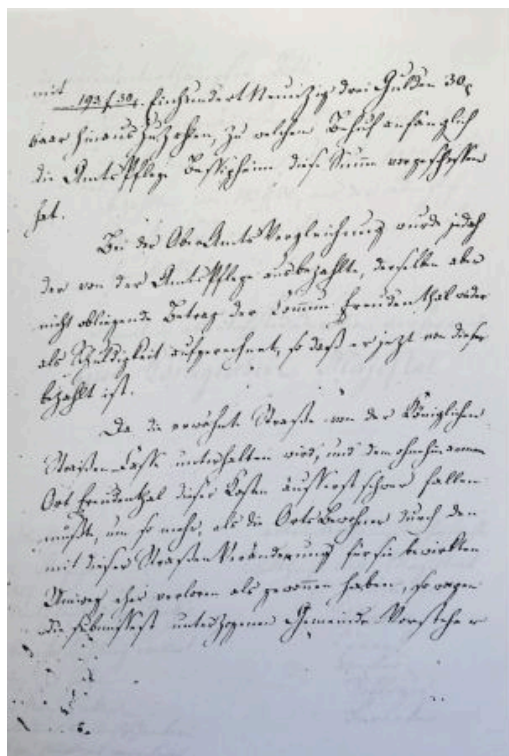 mit 193 f. 30 x. Einhundert Neunzig drei Gulden 30 x
baar hinauszuzahlen, zu welchem Behuf anfänglich
die AmtsPflege Bessigheim diese Summe vorgeschossen
hat.
Bei der OberAmtsVergleichung wurde jedoch
der von der AmtsPflege ausbezahlte, derselben aber
nicht obliegende Betrag der Commun Freudenthal wieder
als Schuldigkeit aufgerechnet, so daß er jetzt von dieser
bezahlt ist.
Da die erwähnte Straße von der Königlichen
Straßen Casse unterhalten wird, und dem ohnehin armen
Ort Freudenthal dieser Kosten äusserst schwer fallen
müßte, um so mehr, als die Ortsbewohner durch den
mit dieser Straßen Veränderung für sie bewirkten
Umweg eher verloren als gewonnen haben, so wagen
die submissest unterzogenen Gemeinde Vorsteher